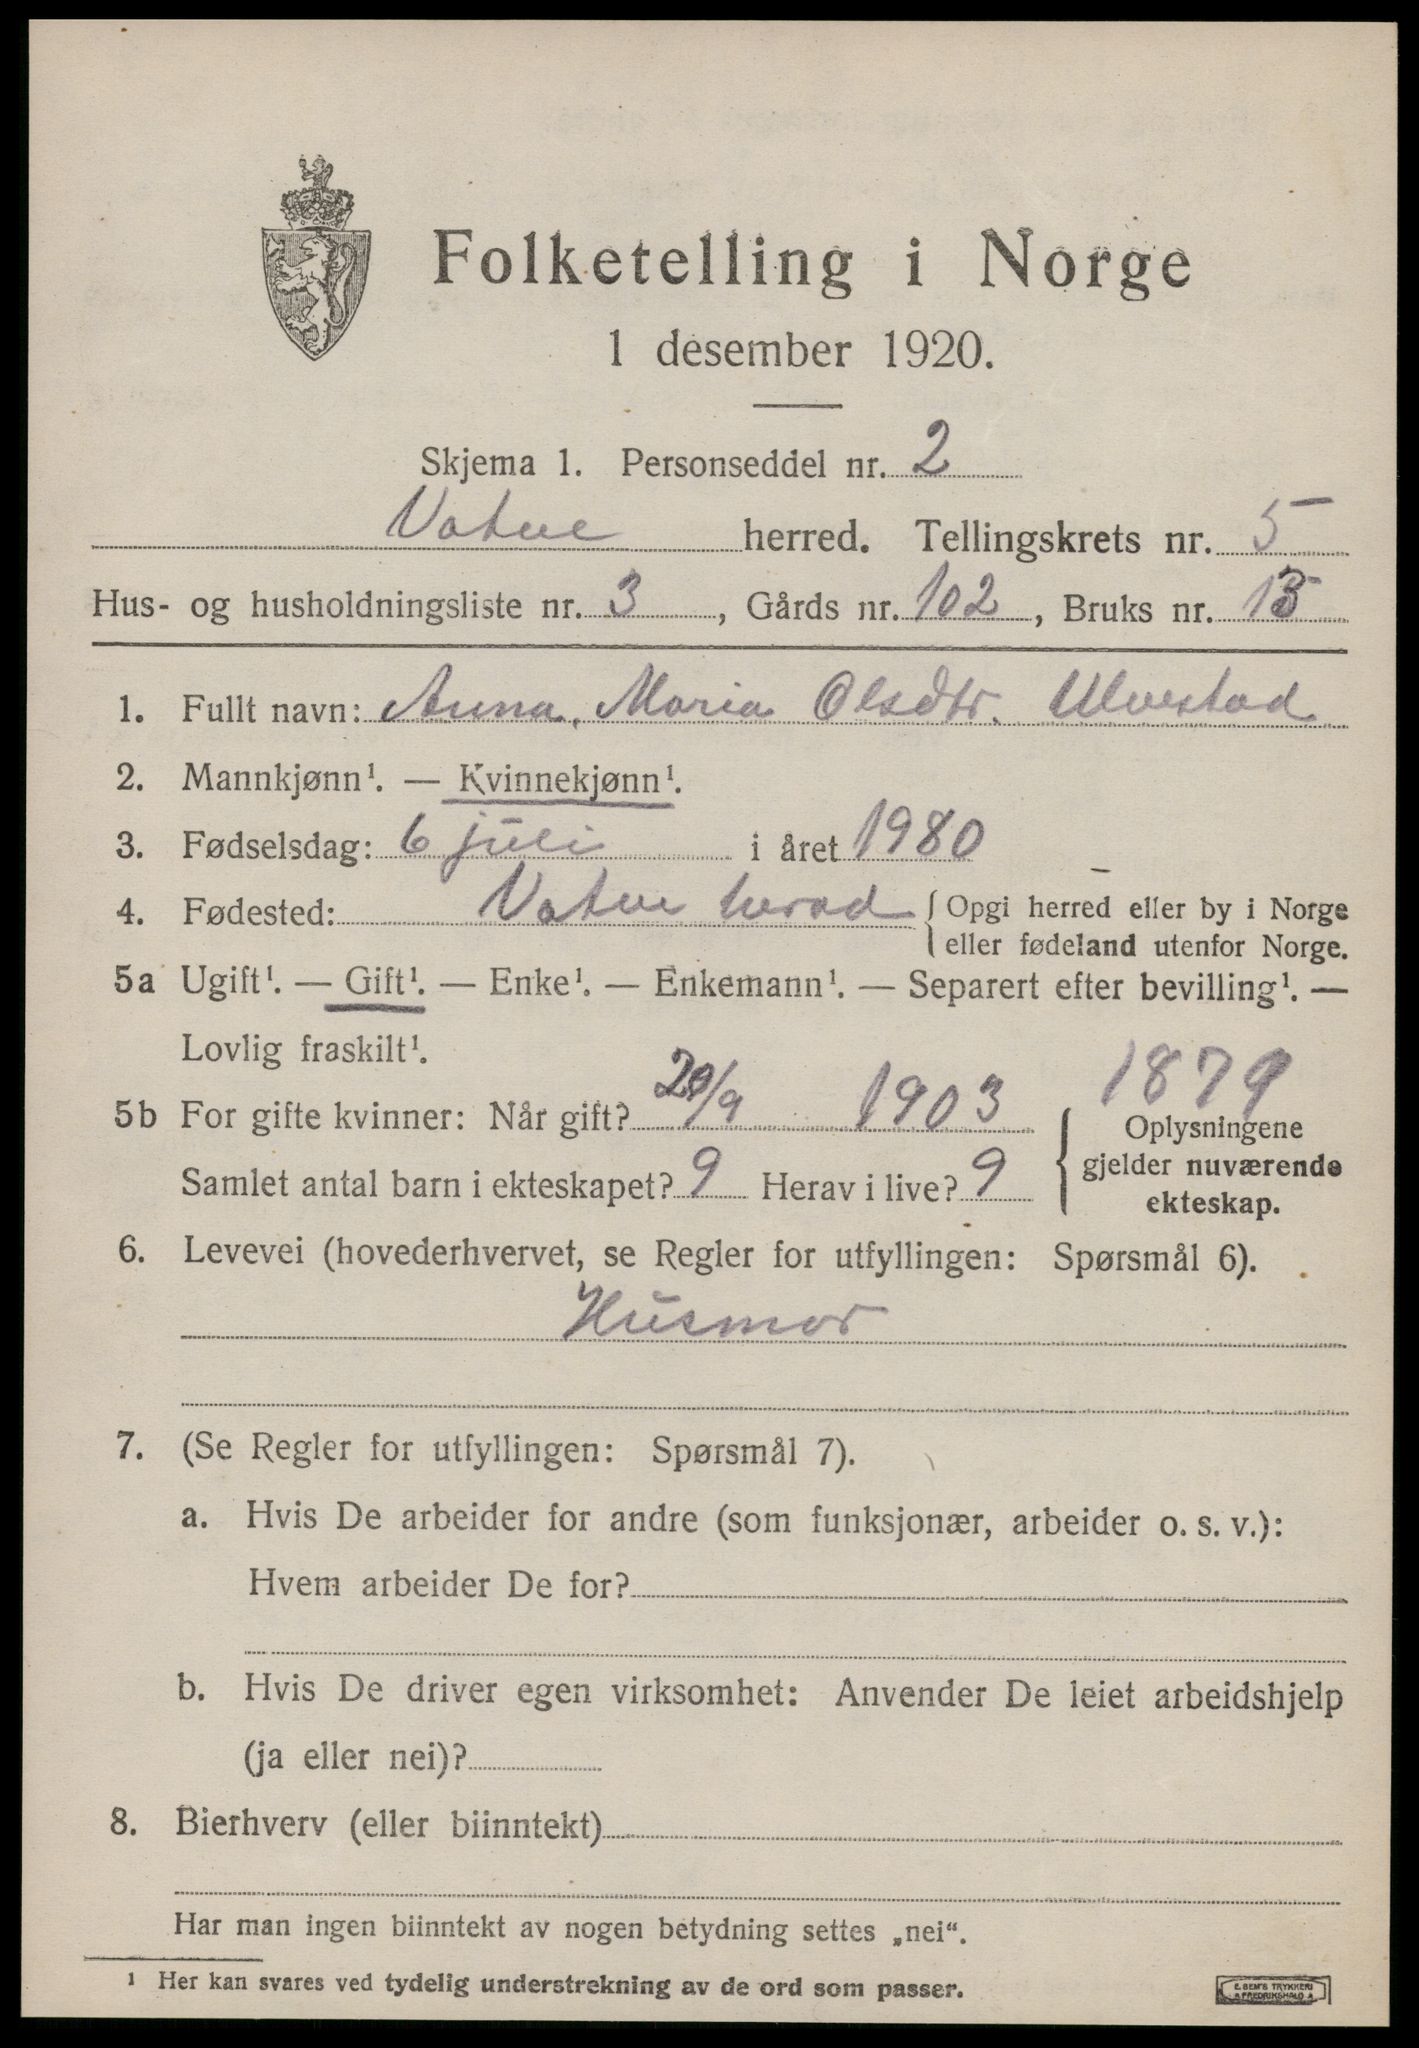 Folketelling i Norge
1 desember 1920.
Skjema 1. Personseddel nr. 2
Vatne herred. Tellingskrets nr. 5
Hus- og husholdningsliste nr. 3, Gårds nr. 102, Bruks nr. 13
1. Fullt navn: Anna, Maria Olsdtr. Ulvestad
2. Mannkjønn¹. — Kvinnekjønn¹.
3. Fødselsdag: 6 juli i året 1980
4. Fødested: Vatne herad { Opgi herred eller by i Norge
eller fødeland utenfor Norge.
5a Ugift¹. — Gift¹. — Enke¹. — Enkemann¹. — Separert efter bevilling¹. —
Lovlig fraskilt¹.
1879
5b For gifte kvinner: Når gift? 20/9 1903 { Oplysningene
gjelder nuværende
Samlet antal barn i ekteskapet? 9 Herav i live? 9
ekteskap.
6. Levevei (hovederhvervet, se Regler for utfyllingen: Spørsmål 6).
Husmor
7. (Se Regler for utfyllingen: Spørsmål 7).
a. Hvis De arbeider for andre (som funksjonær, arbeider o. s. v.):
Hvem arbeider De for?
b. Hvis De driver egen virksomhet: Anvender De leiet arbeidshjelp
(ja eller nei)?
8. Bierhverv (eller biinntekt)
Har man ingen biinntekt av nogen betydning settes „nei“.
¹ Her kan svares ved tydelig understrekning av de ord som passer.
E. SEM'S TRYKKERI
FREDRIKSHALD